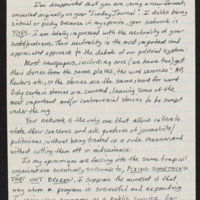 I'm disappointed that you are using a new format,
unveiled originally on your Sunday Journal. I dislike being
critical or picky because in my opinion, your network is
TOPS. I am totally impressed with the neutrality of your
hosts/hostesses. Their neutrality is the most important and
appreciated approach to the debate of our political system.
Most newspapers, including ours (we have two) get
their stories from the same places, the wire services. At
Readers etc., the stories are the same, word for word.
Only certain stories are covered, leaving some of the
most important and/or controversial stories to be swept
under the rug.
Your network is the only one that allows callers to
state their concerns and ask questions of journalists/
politicians, without being treated in a rude manner and
without cutting them off in midsentence.
In my opinion you are falling into the same trap all
organizations eventually succumb to, FIXING SOMETHING
THAT ISN'T BROKEN! I suppose the mindset is that
way when a program is successful and expanding.